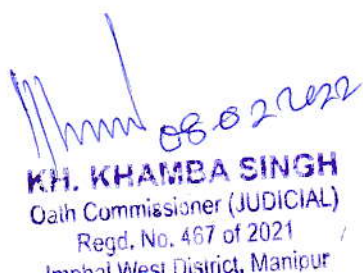 08.02.2022
KH. KHAMBA SINGH
Oath Commissioner (JUDICIAL)
Regd. No. 467 of 2021
Imphal West District, Manipur